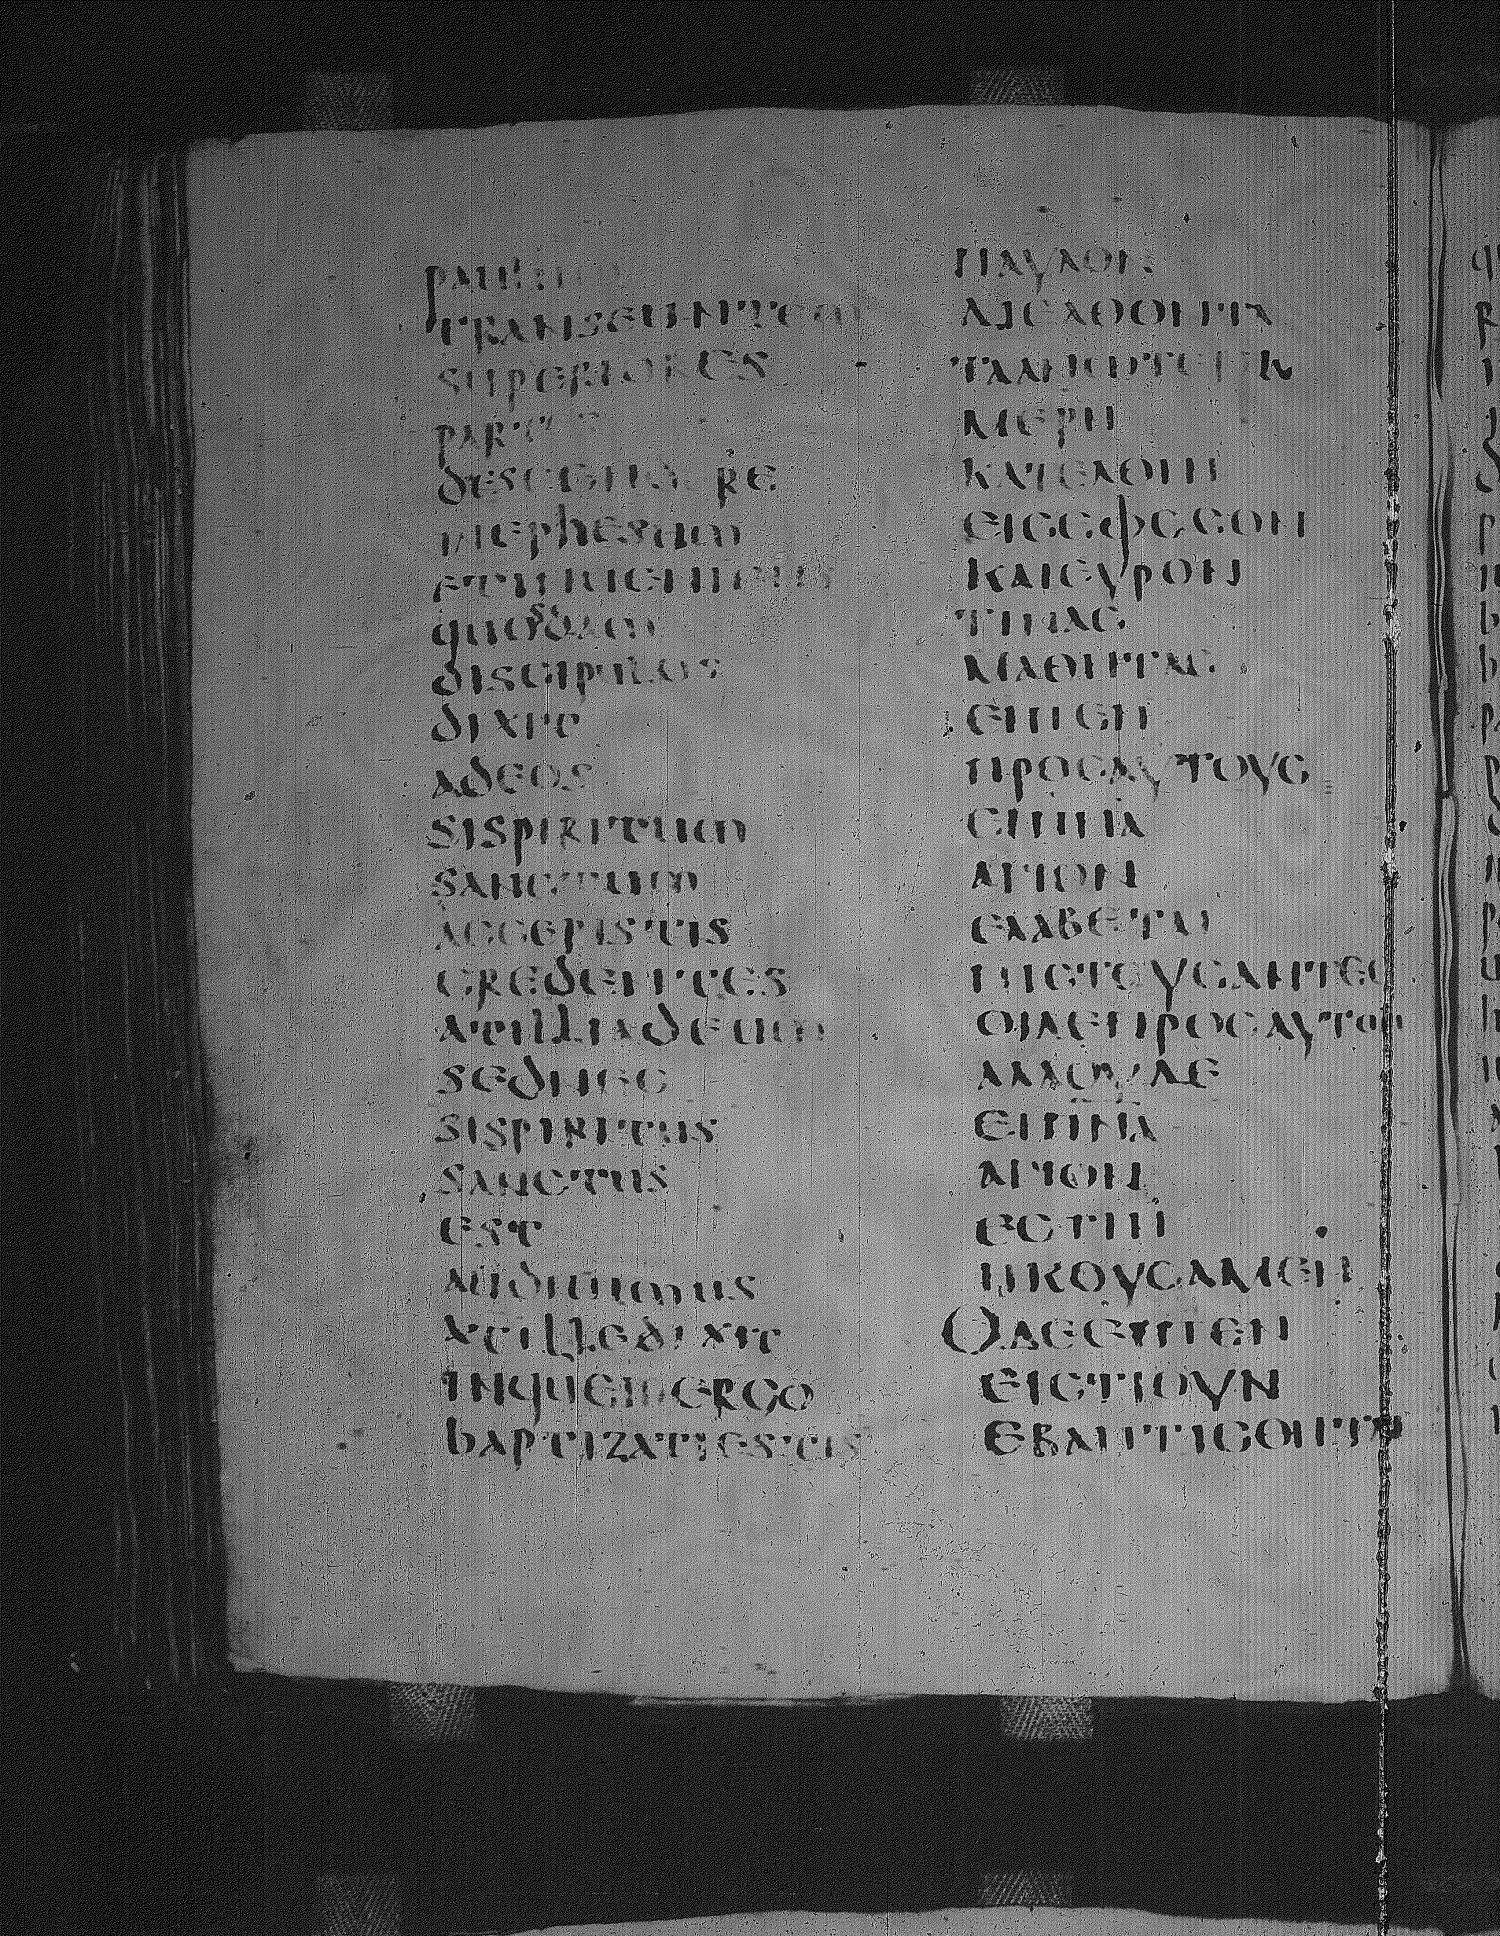 paulum
transeuntem
superiores
partes
descendere
inephesum
etinuenientem
quosdam
discipulos
dixit
adeos
sispiritum
sanctum
accepistis
credentes
atilliadeum
sednec
sispiritus
sanctus
est
audiuimus
atilledixit
inquemergo
baptizatiestis
ΠΑΥΛΟΝ
ΔΙΕΛΘΟΝΤΑ
ΤΑΑΝΩΤΕΡΙΚΑ
ΜΕΡΗ
ΚΑΤΕΛΘΙΝ
ΕΙCΕΦΕCΟΝ
ΚΑΙΕΥΡΟΝ
ΤΙΝΑC
ΜΑΘΗΤΑC
ΕΙΠΕΝ
ΠΡΟCΑΥΤΟΥC
ΕΙΠΝΑ
ΑΓΙΟΝ
ΕΛΑΒΕΤΑΙ
ΠΙCΤΕΥCΑΝΤΕC
ΟΙΔΕΠΡΟCΑΥΤΟΝ
ΑΛΛΟΥΔΕ
ΕΙΠΝΑ
ΑΓΙΟΝ
ΕCΤΙΝ
ΗΚΟΥCΑΜΕΝ
ΟΔΕΕΙΠΕΝ
ΕΙCΤΙΟΥΝ
ΕΒΑΠΤΙCΘΗΤΑΙ